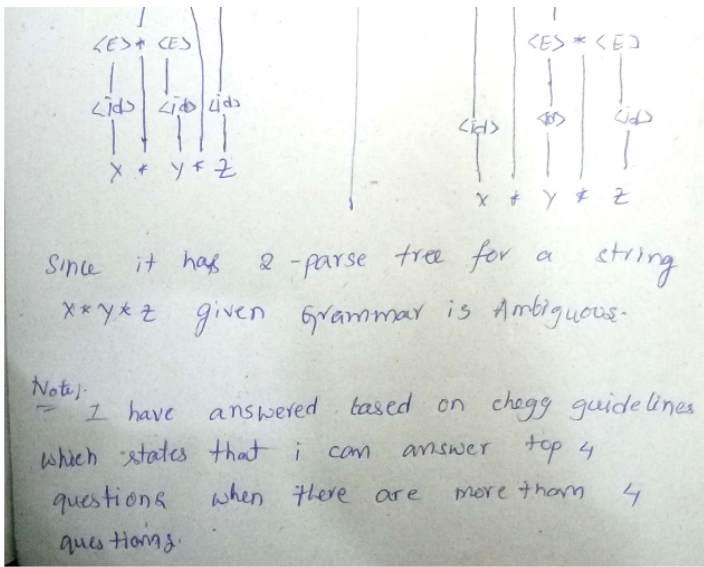 <E> * <E> <E> * <E>
<id> <id> <id> <id> <id> <id>
X * Y * Z X * Y * Z
Since it has 2 -parse tree for a string
X * Y * Z given Grammar is Ambiguous.
Note:-
I have answered based on chegg guidelines
which states that i can answer top 4
questions when there are more than 4
questions.